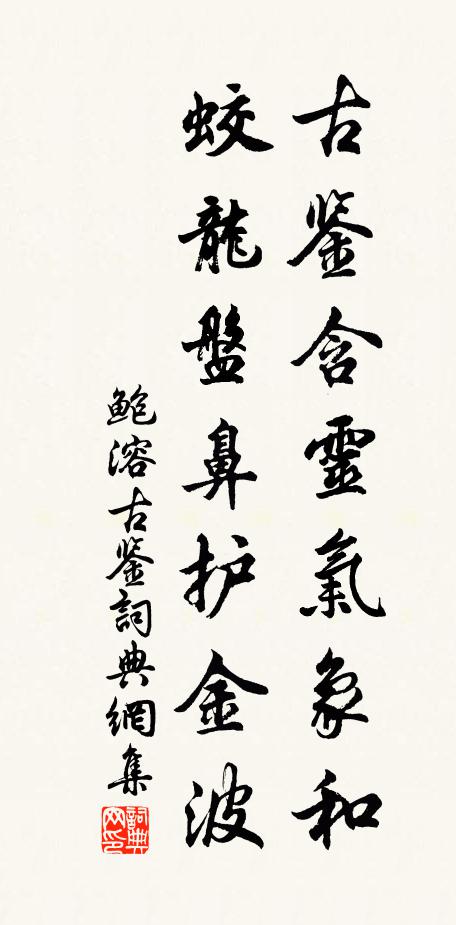 古鉴含靈氣象和
蛟龍盤鼻护金波
鲍溶古鉴詞典網集
詞典网印